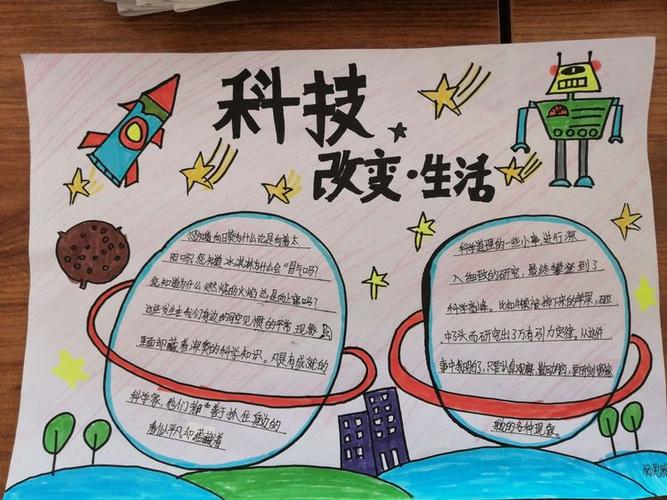 科技
改变·生活
您知道向日葵为什么总是向着太
阳吗?您知道冰淇淋为什么会"冒气"吗?
您知道为什么燃烧的火焰总是向上蹿吗?
这些发生在我们身边的司空见惯的平常现象
里面却藏着深奥的科学知识。凡是有成就的
科学家,他们都善于抓住身边的
看似平凡和蕴藏着
科学道理的一些小事进行深
入细致的研究,最终攀登到了
科学高峰。比如牛顿被掉下来的苹果,砸
中了头而研究出了万有引力定律。从这件
事中表明的,只要认真观察,勤动脑筋,
的各种现象。